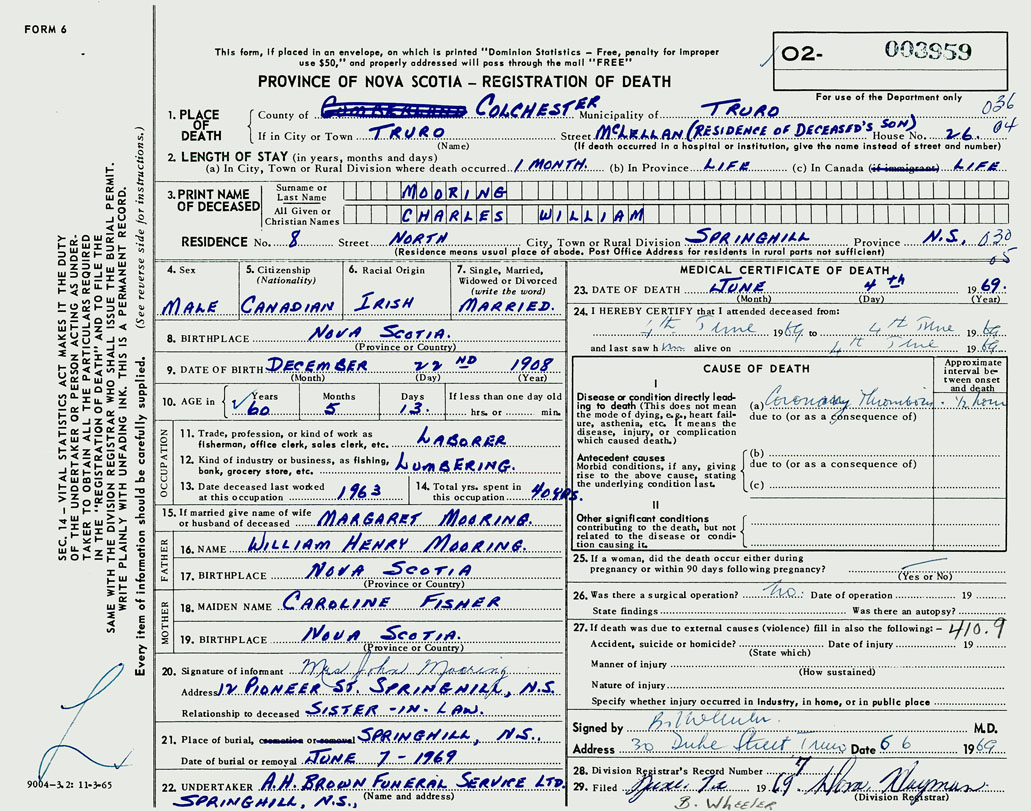 FORM 6
This form, if placed in an envelope, on which is printed "Dominion Statistics – Free, penalty for improper
use $50," and properly addressed will pass through the mail "FREE"
PROVINCE OF NOVA SCOTIA – REGISTRATION OF DEATH
02- 003959
For use of the Department only
036
04
1. PLACE OF DEATH
County of COLCHESTER Municipality of TRURO
If in City or Town TRURO Street McLELLAN (RESIDENCE OF DECEASED'S SON) House No. 26
(Name) (If death occurred in a hospital or institution, give the name instead of street and number)
2. LENGTH OF STAY (in years, months and days)
(a) In City, Town or Rural Division where death occurred 1 MONTH. (b) In Province LIFE (c) In Canada (if immigrant) LIFE
3. PRINT NAME OF DECEASED
Surname or Last Name MOORING
All Given or Christian Names CHARLES WILLIAM
RESIDENCE No. 8 Street NORTH City, Town or Rural Division SPRINGHILL Province N.S. 030
05
(Residence means usual place of abode. Post Office Address for residents in rural parts not sufficient)
4. Sex MALE
5. Citizenship (Nationality) CANADIAN
6. Racial Origin IRISH
7. Single, Married, Widowed or Divorced (write the word) MARRIED.
8. BIRTHPLACE NOVA SCOTIA.
(Province or Country)
9. DATE OF BIRTH DECEMBER 22ND 1908
(Month) (Day) (Year)
10. AGE in Years 60 Months 5 Days 13. If less than one day old
hrs. or min.
OCCUPATION
11. Trade, profession, or kind of work as
fisherman, office clerk, sales clerk, etc. LABORER
12. Kind of industry or business, as fishing,
bank, grocery store, etc. LUMBERING.
13. Date deceased last worked
at this occupation 1963
14. Total yrs. spent in
this occupation 40 YRS.
15. If married give name of wife
or husband of deceased MARGARET MOORING.
FATHER
16. NAME WILLIAM HENRY MOORING.
17. BIRTHPLACE NOVA SCOTIA
(Province or Country)
MOTHER
18. MAIDEN NAME CAROLINE FISHER
19. BIRTHPLACE NOVA SCOTIA.
(Province or Country)
20. Signature of informant Mrs John Mooring
Address 12 PIONEER ST. SPRINGHILL, N.S.
Relationship to deceased SISTER-IN-LAW.
21. Place of burial, cremation or removal SPRINGHILL, N.S.,
Date of burial or removal JUNE 7 - 1969
22. UNDERTAKER A.H. BROWN FUNERAL SERVICE LTD.
SPRINGHILL, N.S., (Name and address)
MEDICAL CERTIFICATE OF DEATH
23. DATE OF DEATH JUNE 4th 1969.
(Month) (Day) (Year)
24. I HEREBY CERTIFY that I attended deceased from:
4th June 1969 to 4th June 1969
and last saw him alive on 4th June 1969.
CAUSE OF DEATH
Approximate interval between onset and death
I
Disease or condition directly leading to death (This does not mean the mode of dying, e.g., heart failure, asthenia, etc. It means the disease, injury, or complication which caused death.)
(a) Coronary Thrombosis. 1/2 hour
due to (or as a consequence of)
Antecedent causes
Morbid conditions, if any, giving rise to the above cause, stating the underlying condition last.
(b)
due to (or as a consequence of)
(c)
II
Other significant conditions
contributing to the death, but not related to the disease or condition causing it.
25. If a woman, did the death occur either during
pregnancy or within 90 days following pregnancy?
(Yes or No)
26. Was there a surgical operation? no. Date of operation 19
State findings Was there an autopsy?
27. If death was due to external causes (violence) fill in also the following: – 410.9
Accident, suicide or homicide? Date of injury 19
(State which)
Manner of injury
(How sustained)
Nature of injury
Specify whether injury occurred in industry, in home, or in public place
Signed by M.D.
Address 30 Duke Street Truro Date 6 6 1969
28. Division Registrar's Record Number 7
29. Filed June 1969
(Division Registrar)
B. Wheeler
SEC. 14 – VITAL STATISTICS ACT MAKES IT THE DUTY
OF THE UNDERTAKER OR PERSON ACTING AS UNDER-
TAKER TO OBTAIN ALL THE PARTICULARS REQUIRED
IN THE "REGISTRATION OF DEATH" AND TO FILE THE
SAME WITH THE DIVISION REGISTRAR WHO SHALL ISSUE THE BURIAL PERMIT.
WRITE PLAINLY WITH UNFADING INK. THIS IS A PERMANENT RECORD.
Every item of information should be carefully supplied. (See reverse side for instructions.)
9004-3.2: 11-3-65